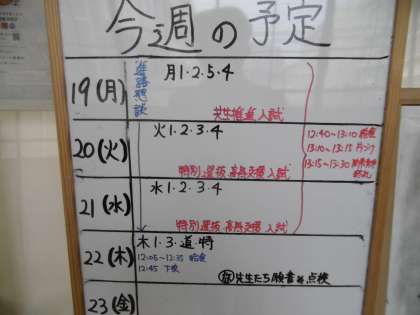 今週の予定
19(月)
進路懇談
月1・2・5・4
入試
20(火)
火1・2・3・4
特別選抜 入試
12:40~13:10 給食
13:10~13:15
13:15~13:30
21(水)
水1・2・3・4
特別選抜 入試
22(木)
木1・3・道・特
12:05~12:35 給食
12:45 下校
先生たち願書等点検
23(金)